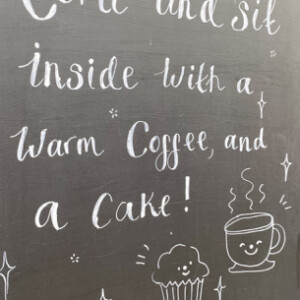 Come and sit
inside with a
warm Coffee, and
a cake!